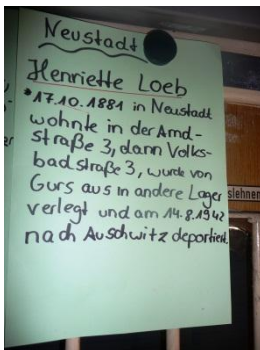 Neustadt
Henriette Loeb
*17.10.1881 in Neustadt
wohnte in der Amd-
straße 3, dann Volks-
badstraße 3, wurde von
Gurs aus in andere Lager
verlegt und am 14.8.1942
nach Auschwitz deportiert.
slehnen